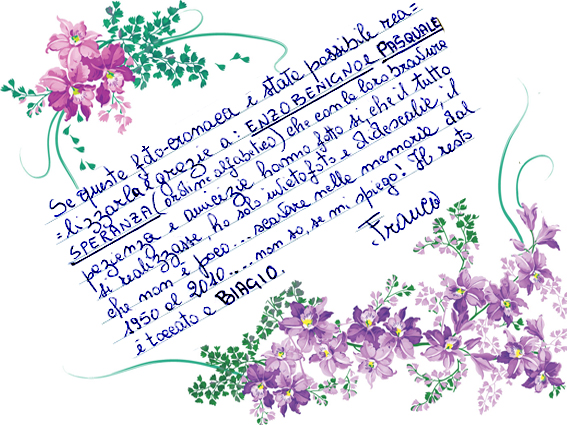 Se queste foto-cronaca è stato possibile rea=
=lizzarla è grazie a: ENZO BENIGNO e PASQUALE
SPERANZA (ordine alfabetico) che con la loro bravura
pazienza e amicizia hanno fatto sì, che il tutto
si realizzasse, ho solo inviato foto e didescalie, il
che non è poco... scavare nelle memorie dal
1950 al 2010.... non so, se mi spiego! Il resto
è toccato a BIAGIO.
Franco